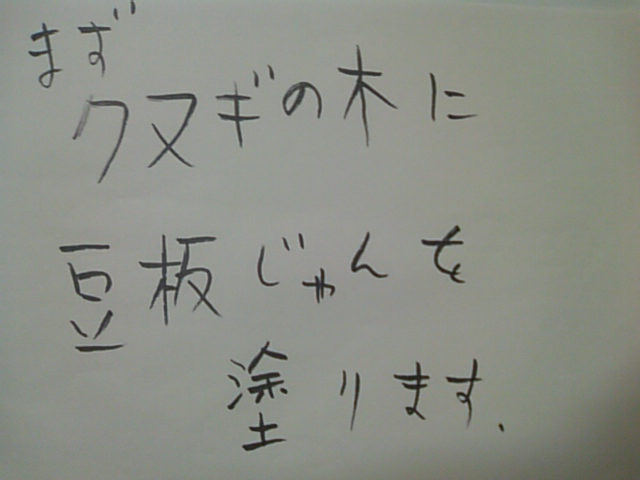 まず
クヌギの木に
豆板じゃんを
塗ります.